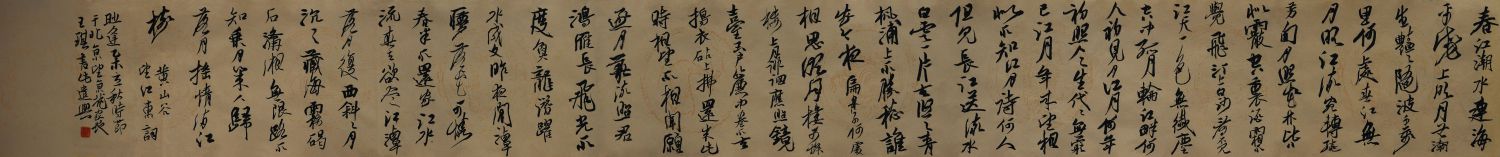 春江潮水連海
平海上明月共潮
生灩灩隨波千萬
里何處春江無
月明江流宛轉遶
芳甸月照花林皆
似霰空裏流霜不
覺飛汀上白沙看不見
江天一色無纖塵
空中孤月輪江畔何
人初見月江月何年
初照人人生代代無窮
已江月年年望相
似不知江月待何人
但見長江送流水
白雲一片去悠悠青
楓浦上不勝愁誰
家今夜扁舟子何處
相思明月樓可憐
樓上徘徊應照鏡
臺玉戶簾中卷不去
搗衣砧上拂還來此
時相望不相聞願
逐月華流照君
鴻雁長飛光不
度魚龍潛躍
水成文昨夜閒潭
夢落花可憐
春半不還家江水
流春去欲盡江潭
落月復西斜斜月
沉沉藏海霧碣
石瀟湘無限路不
知乘月幾人歸
落月搖情滿江
樹
黃山谷
望江東詞
秋時節
于北京